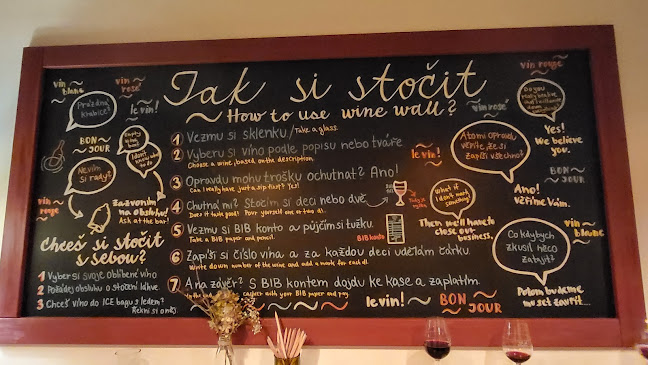 Jak si stočit
~ How to use wine wall? ~
1 Vezmu si sklenku / Take a glass.
2 Vyberu si víno podle popisu nebo tváře
Choose a wine, based on the description.
3 Opravdu mohu trošku ochutnat? Ano!
Can I really have just a sip first? Yes!
4 Chutná mi? Stočím si deci nebo dvě.
Does it taste good? Pour yourself one or two dl.
5 Vezmu si BIB konto a půjčím si tužku.
Take a BIB paper and pencil.
BIB konto
6 Zapíši si číslo vína a za každou deci udělám čárku.
Write down number of the wine and add a mark for each dl.
7 A na závěr? S BIB kontem dojdu ke kase a zaplatím.
cashier with your BIB paper and pay
vin
blanc
vin
rosé
Prázdná
krabice?
le vin!
BON
JOUR
Empty
wine
box?
I don't
know what
to do
Nevím
si rady?
vin
rouge
Zazvoním
na obsluhu!
Ask at the bar!
Chceš si stočit
s sebou?
1 Vyber si svoje oblíbené víno
2 Požádej obsluhu o stočení lahve.
3 Chceš víno do ICE bagu s ledem?
Řekni si o něj.
vin rouge
Do you
really believe
that I will write
down
everything?
vin rosé
Yes!
We believe
you.
Atomi opravdu
věříte, že si
zapíši všechno?
le vin!
BON
JOUR
Ano!
Věříme Vám.
What if
I don't mark
something?
Then we'll have to
close our
business.
vin
blanc
Co kdybych
zkusil něco
zatajit?
Potom budeme
muset zavřít...
le vin!
BON
JOUR